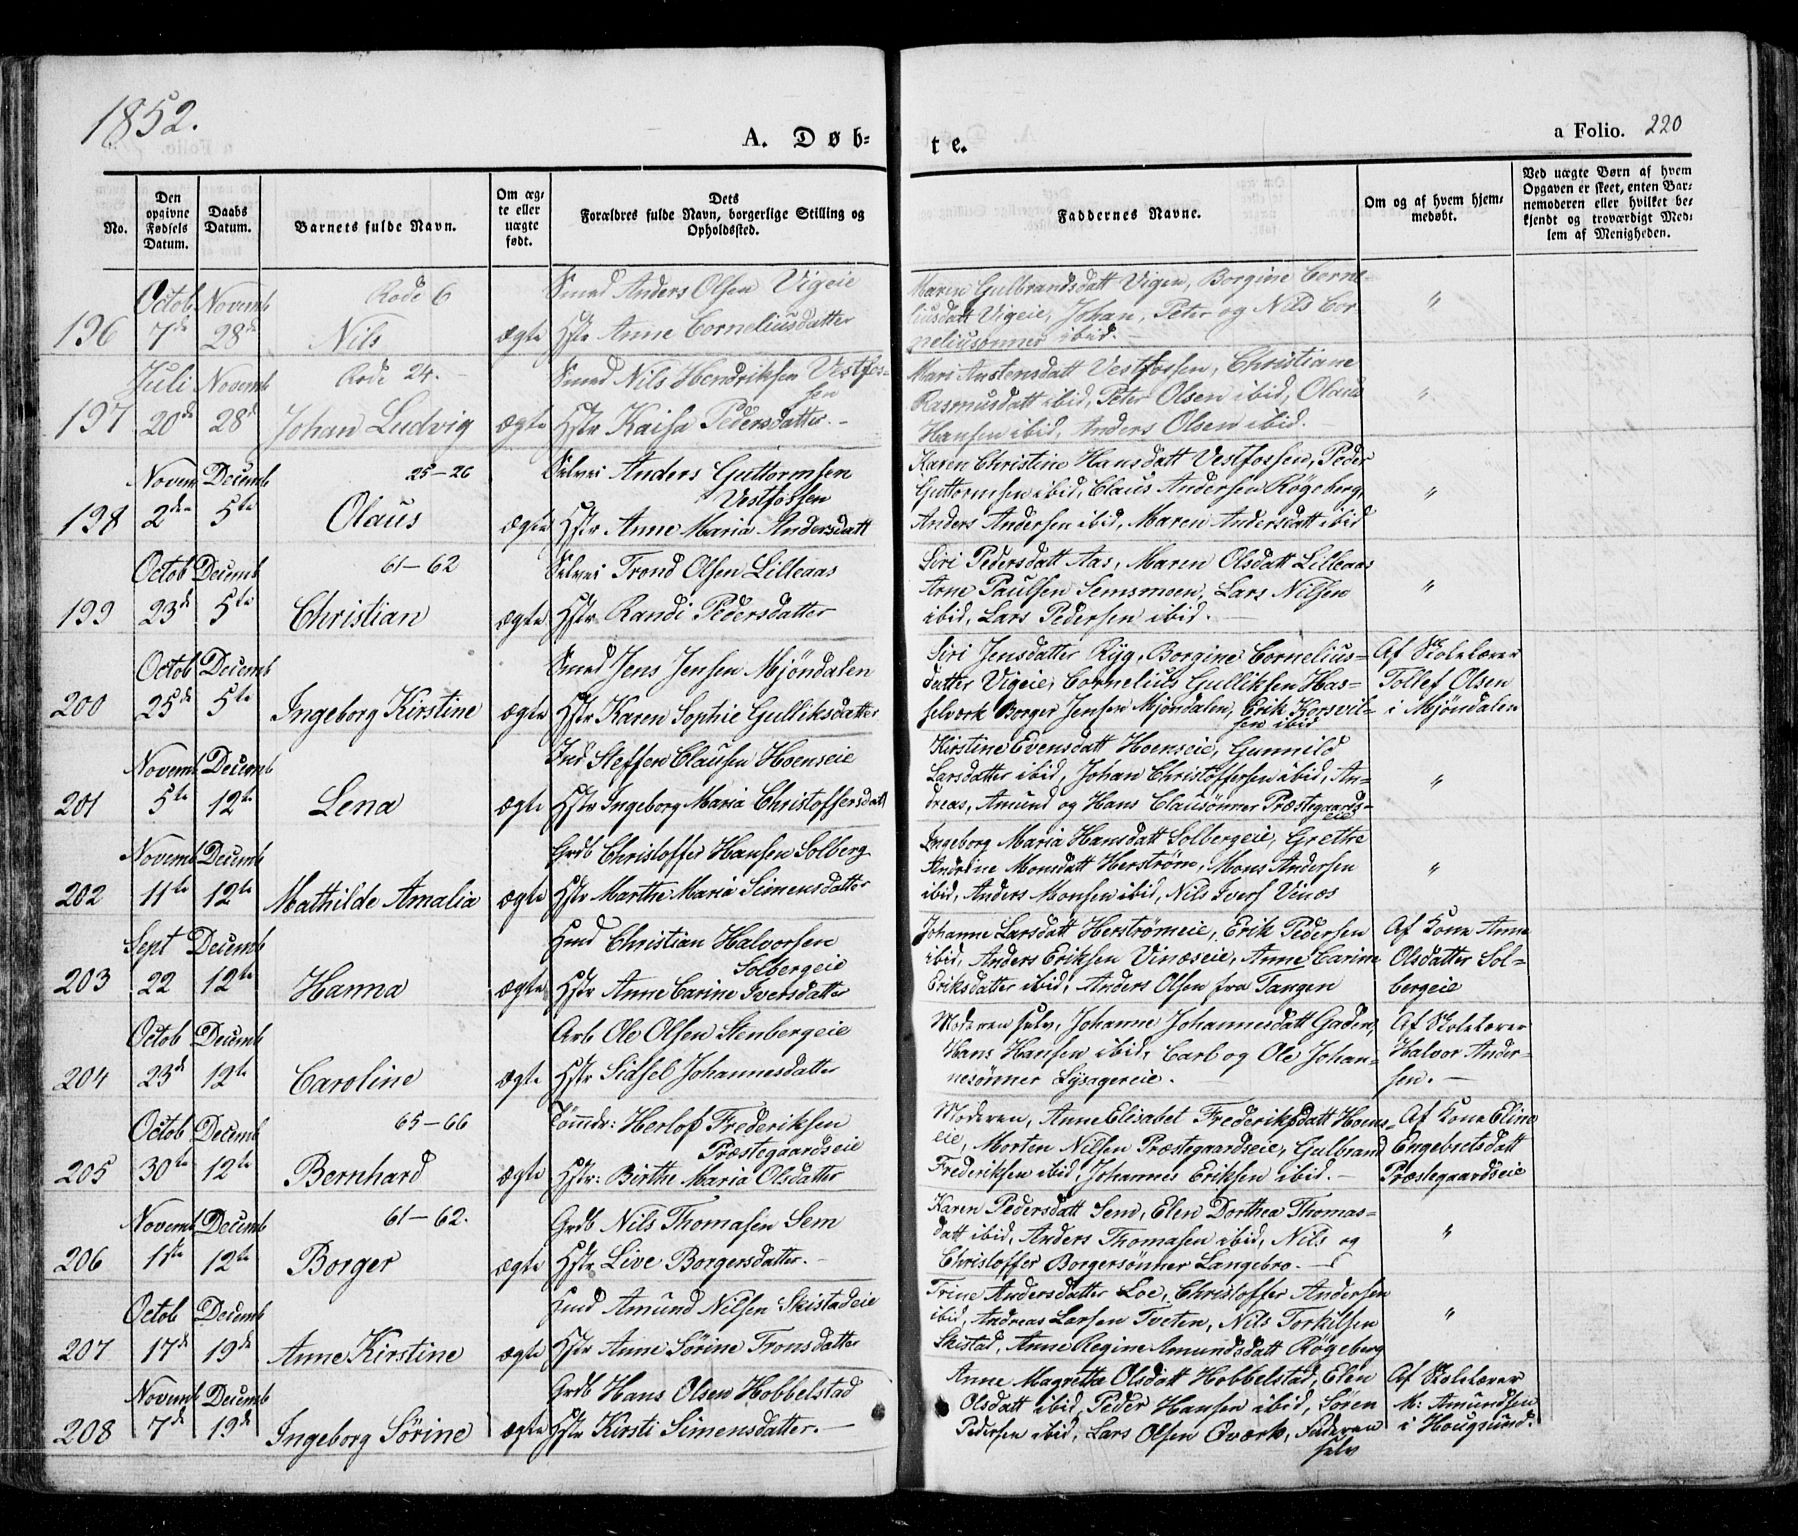 1852.
A. Døb-
te.
a Folio. 220
No.
Den opgivne Fødsels Datum.
Daabs Datum.
Barnets fulde Navn.
Om ægte eller uægte født.
Dets Forældres fulde Navn, borgerlige Stilling og Opholdssted.
Faddernes Navne.
Om og af hvem hjemmedøbt.
Ved uægte Børn af hvem Opgaven er skeet, enten Barnemoderen eller hvilket bekjendt og troværdigt Medlem af Menigheden.
Octob Novemb Rode 6 Smed Anders Olsen Vigeie Maren Gulbrandsdatt Vigen, Borgine Corne-
196 7de 28de Nils ægte Hstr Anne Corneliusdatter liusdatt Vigeie, Johan, Peter og Nils Cor- "
neliussønner ibid.
Juli Novemb Rode 24. Smed Nils Hendriksen Vestfos- Mari Austensdatt Vestfossen, Christiane
sen Rasmusdatt ibid, Peter Olsen ibid, Olaus "
197 20de 28de Johan Ludvig ægte Hstr Kaisa Pedersdatter. Hansen ibid, Anders Olsen ibid.
Novem Decemb 25-26 Selvei Anders Guttormsen Karen Christine Hansdatt Vestfossen, Peder
Vestfossen Guttormsen ibid, Claus Andersen Røgeberg, "
198 2den 5te Olaus ægte Hstr Anne Maria Andersdatt Anders Andersen ibid, Maren Andersdatt ibid
Octob Decemb 61-62 Selvei Trond Olsen Lilleaas Siri Pedersdatt Aas, Maren Olsdatt Lilleaas
Arne Paulsen Semsmoen, Lars Nilsen "
199 23de 5te Christian ægte Hstr Randi Pedersdatter ibid, Lars Pedersen ibid.
Octob Decemb Smed Jens Jensen Mjøndalen Siri Jensdatter Ryg, Borgine Cornelius- Af Skolelærer
datter Vigeie, Cornelius Gulliksen Has- Tollef Olsen
200 25de 5te Ingeborg Kirstine ægte Hstr Karen Sophie Gulliksdatter selverk Borger Jensen Mjøndalen, Erik Korsvil- i Mjøndalen
sen ibid
Novemb Decemb Ind Steffen Clausen Hoenseie Kirstine Evensdatt Hoenseie, Gunnild
Larsdatter ibid, Johan Christoffersen ibid, An- "
201 5te 12te Lena ægte Hstr Ingeborg Maria Christoffersdatt dreas, Amund og Hans Claussønner Præstegaards-
eie
Novemb Decemb Grdb Christoffer Hansen Solberg Ingeborg Maria Hansdatt Solbergeie, Grethe
Andrine Monsdatt Herstrøm, Mons Andersen "
202 11te 12te Mathilde Amalia ægte Hstr Marthe Maria Simensdatter ibid, Anders Monsen ibid, Nils Ivers Vinæs
Sept Decemb Husd Christian Halvorsen Johanne Larsdatt Herstrømeie, Erik Pedersen Af Kone Anne
Solbergeie ibid, Anders Eriksen Vinæseie, Anne Carine Olsdatter Sol-
203 22 12te Hanna ægte Hstr Anne Carine Iversdatter Eriksdatter ibid, Anders Olsen fra Tangen bergeie
Octob Decemb Arb Ole Olsen Stenbergeie Moderen selv, Johanne Johannesdatt Gaden, Af Skolelærer
Hans Hansen ibid, Carl og Ole Johan- Halvor Ander-
204 23de 12te Caroline ægte Hstr Sidsel Johannesdatter nessønner Lysagereie. sen.
Octob Decemb 65-66 Tømmdr: Herlof Frederiksen Moderen, Anne Elisabet Frederiksdatt Hoens- Af Kone Eline
Præstegaardseie eie, Morten Nilsen Præstegaardseie, Gulbrand Engebretsdatt
205 30te 12te Bernhard ægte Hstr: Birthe Maria Olsdatter Frederiksen ibid, Johannes Eriksen ibid. Præstegaardseie
Novemb Decemb 61-62. Grdb Nils Thomasen Sem Karen Pedersdatt Sem, Elen Dorthea Thomas-
datt ibid, Anders Thomasen ibid, Nils og "
206 1ste 12te Borger ægte Hstr Live Borgersdatter. Christoffer Borgersønner Langebro.
Octob Decemb Husd Amund Nilsen Skistadeie Trine Andersdatter Loe, Christoffer Andersen
ibid, Andreas Larsen Tveten, Nils Torkilsen "
207 17de 19de Anne Kirstine ægte Hstr Anne Sørine Tronsdatter Skistad, Anne Regine Amundsdatt Røgeberg
Novemb Decemb Grdb Hans Olsen Hobbelstad Anne Magretta Olsdatt Hobbelstad, Elen Af Skolelærer
Olsdatt ibid, Peder Hansen ibid, Søren K: Amundsen
208 7de 19de Ingeborg Sørine ægte Hstr Kirsti Simensdatter. Pedersen ibid, Lars Olsen Qværk, Faderen i Hougsund.
selv